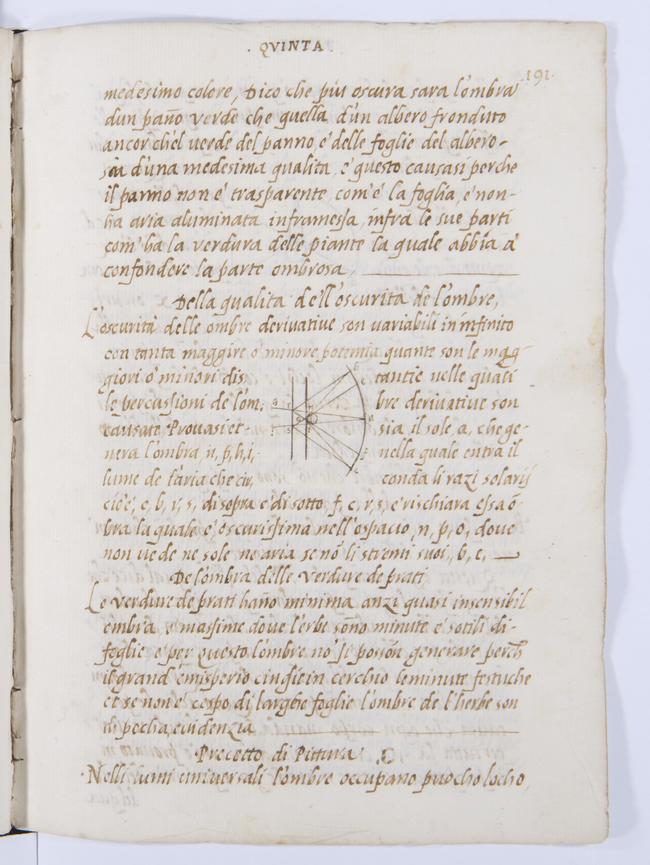 . QVINTA .
191.
medesimo colore, Dico che più oscura sara l'ombra
d'un paño verde che quella d'un albero fronduto
ancor ch'el verde del panno, e' delle foglie del albero-
sia d'una medesima qualita, e' questo causasi perche
il panno non e' trasparente com'e' la foglia, e' non-
ha aria aluminata inframessa, infra le sue parti
com' ha la verdura delle piante la quale abbia a'
confondere la parte ombrosa.
Della qualita dell'oscurita de l'ombre,
L'oscurità delle ombre derivative son variabili in infinito
con tanta maggire o' minore potentia quante son le mag-
giori o' minori dis tantie nelle quali
le percussioni de l'om, bre derivative son
causate Provasi et- sia il sole, a, che ge-
nera l'ombra, n, p, h, i, nella quale entra il
lume de l'aria che cir, conda li razi solarij
cio è', e, b, r, s, di sopra e di sotto, f, c, r, s, e' rischiara essa ō-
bra la quale e' oscurissima nell'ospacio, n, p, o, dove
non vede ne sole ne aria se nō li stremi suoi, b, e,
De l'ombra delle verdure de prati
Le verdure de prati hano minima anzi quasi insensibil
ombra, e massime dove l'erbe sōno minute e' sotili di-
foglie e per questo l'ombre nō si posson generare perch
il grand' emisperio cingie in cerchio le minute festuche
et se non e' cespo di larghe foglie l'ombre de l'herbe son
di pocha evidenzia
Precetto di Pittura
Nelli lumi universali l'ombre occupano puocho locho,